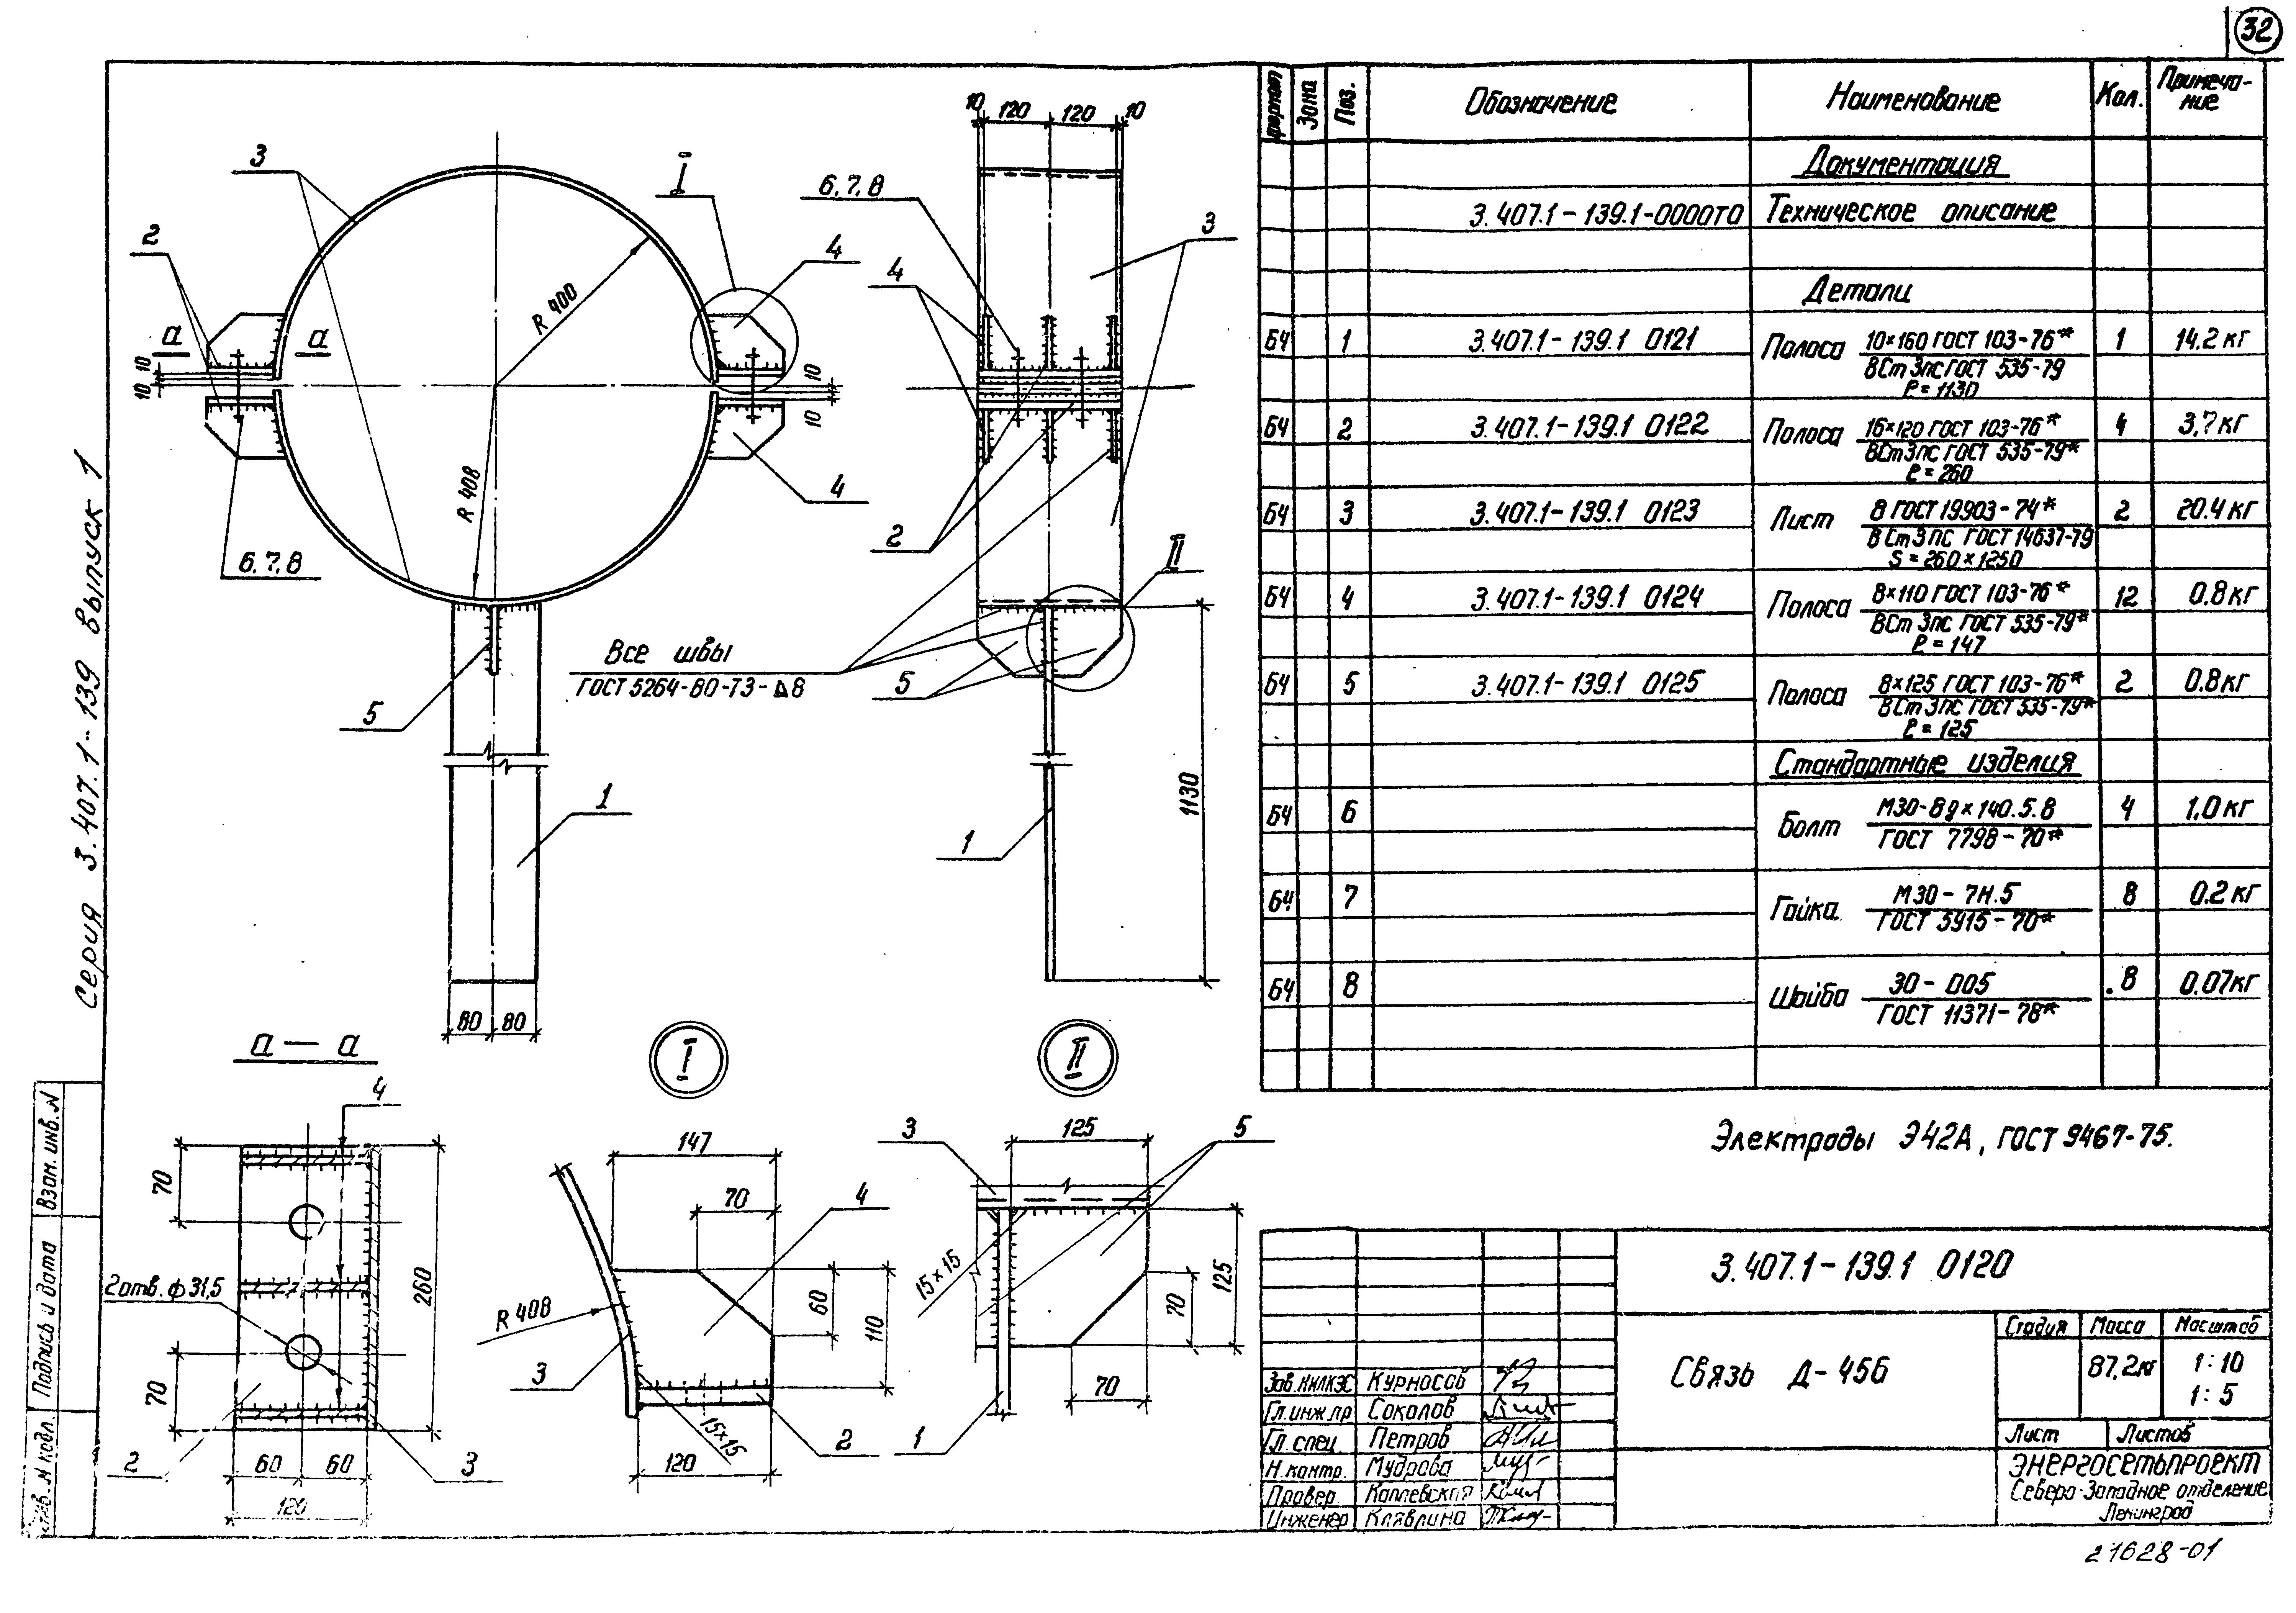 32
Серия 3.407.1-139 Выпуск 1
Взам. инв. N
Подпись и дата
Инв. N подл.
3
2
а
а
10
10
10
10
R 400
R 408
I
4
4
6,7,8
5
1
80
80
10
120
120
10
6,7,8
4
3
2
II
5
1
1130
Все швы
ГОСТ 5264-80-Т3-⊿8
а — а
4
70
2отв. ф31,5
70
260
2
60
60
120
3
I
147
70
4
60
110
R 408
3
15×15
2
120
II
3
125
5
15×15
125
70
70
1
Формат
Зона
Поз.
Обозначение
Наименование
Кол.
Примеча-
ние
Документация
3.407.1-139.1-0000ТО Техническое описание
Детали
БЧ 1 3.407.1-139.1 0121 Полоса 10×160 ГОСТ 103-76* 1 14.2 кг
ВСт3пс ГОСТ 535-79
ℓ = 1130
БЧ 2 3.407.1-139.1 0122 Полоса 16×120 ГОСТ 103-76* 4 3,7 кг
ВСт3пс ГОСТ 535-79*
ℓ = 260
БЧ 3 3.407.1-139.1 0123 Лист 8 ГОСТ 19903-74* 2 20.4 кг
ВСт3пс ГОСТ 14637-79
S = 260×1250
БЧ 4 3.407.1-139.1 0124 Полоса 8×110 ГОСТ 103-76* 12 0.8 кг
ВСт3пс ГОСТ 535-79*
ℓ = 147
БЧ 5 3.407.1-139.1 0125 Полоса 8×125 ГОСТ 103-76* 2 0.8 кг
ВСт3пс ГОСТ 535-79*
ℓ = 125
Стандартные изделия
БЧ 6 Болт М30-8g×140.5.8 4 1,0 кг
ГОСТ 7798-70*
БЧ 7 Гайка М30-7Н.5 8 0.2 кг
ГОСТ 5915-70*
БЧ 8 Шайба 30-005 8 0.07 кг
ГОСТ 11371-78*
Электроды Э42А, ГОСТ 9467-75.
3.407.1-139.1 0120
Связь Д-45б
Стадия Масса Масштаб
87,2кг 1:10
1:5
Лист Листов
Зав.НИЛКЭС Курносов
Гл.инж.пр Соколов
Гл. спец Петров
Н.контр. Мудрова
Провер. Каплевская
Инженер Клявлина
ЭНЕРГОСЕТЬПРОЕКТ
Северо-Западное отделение
Ленинград
21628-01